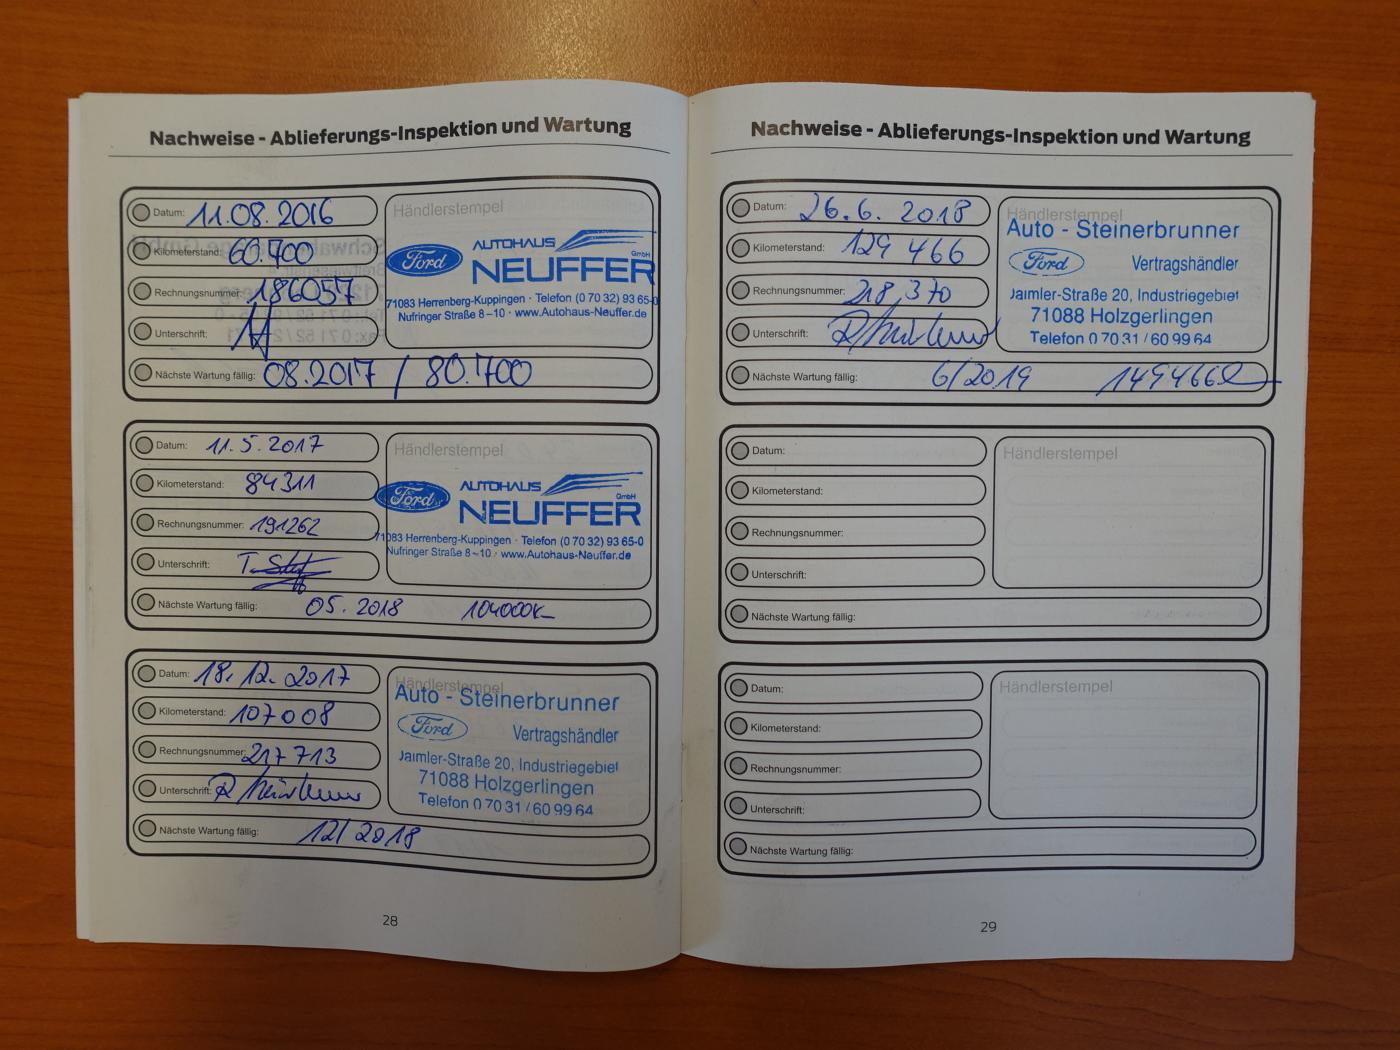 Nachweise - Ablieferungs-Inspektion und Wartung
Datum: 11.08.2016
Kilometerstand: 60.700
Rechnungsnummer: 186057
Unterschrift:
Nächste Wartung fällig: 08.2017 / 80.700
Händlerstempel
Ford
AUTOHAUS
NEUFFER GmbH
71083 Herrenberg-Kuppingen · Telefon (0 70 32) 93 65-0
Nufringer Straße 8–10 · www.Autohaus-Neuffer.de
Datum: 11.5.2017
Kilometerstand: 84311
Rechnungsnummer: 191262
Unterschrift:
Nächste Wartung fällig: 05.2018 104000K
Händlerstempel
Ford
AUTOHAUS
NEUFFER GmbH
71083 Herrenberg-Kuppingen · Telefon (0 70 32) 93 65-0
Nufringer Straße 8–10 · www.Autohaus-Neuffer.de
Datum: 18.12.2017
Kilometerstand: 107008
Rechnungsnummer: 217713
Unterschrift:
Nächste Wartung fällig: 12/2018
Händlerstempel
Auto - Steinerbrunner
Ford Vertragshändler
Jaimler-Straße 20, Industriegebiet
71088 Holzgerlingen
Telefon 0 70 31 / 60 99 64
28
Nachweise - Ablieferungs-Inspektion und Wartung
Datum: 26.6. 2018
Kilometerstand: 129 466
Rechnungsnummer: 218,370
Unterschrift:
Nächste Wartung fällig: 6/2019 149466
Händlerstempel
Auto - Steinerbrunner
Ford Vertragshändler
Jaimler-Straße 20, Industriegebiet
71088 Holzgerlingen
Telefon 0 70 31 / 60 99 64
Datum:
Kilometerstand:
Rechnungsnummer:
Unterschrift:
Nächste Wartung fällig:
Händlerstempel
Datum:
Kilometerstand:
Rechnungsnummer:
Unterschrift:
Nächste Wartung fällig:
Händlerstempel
29